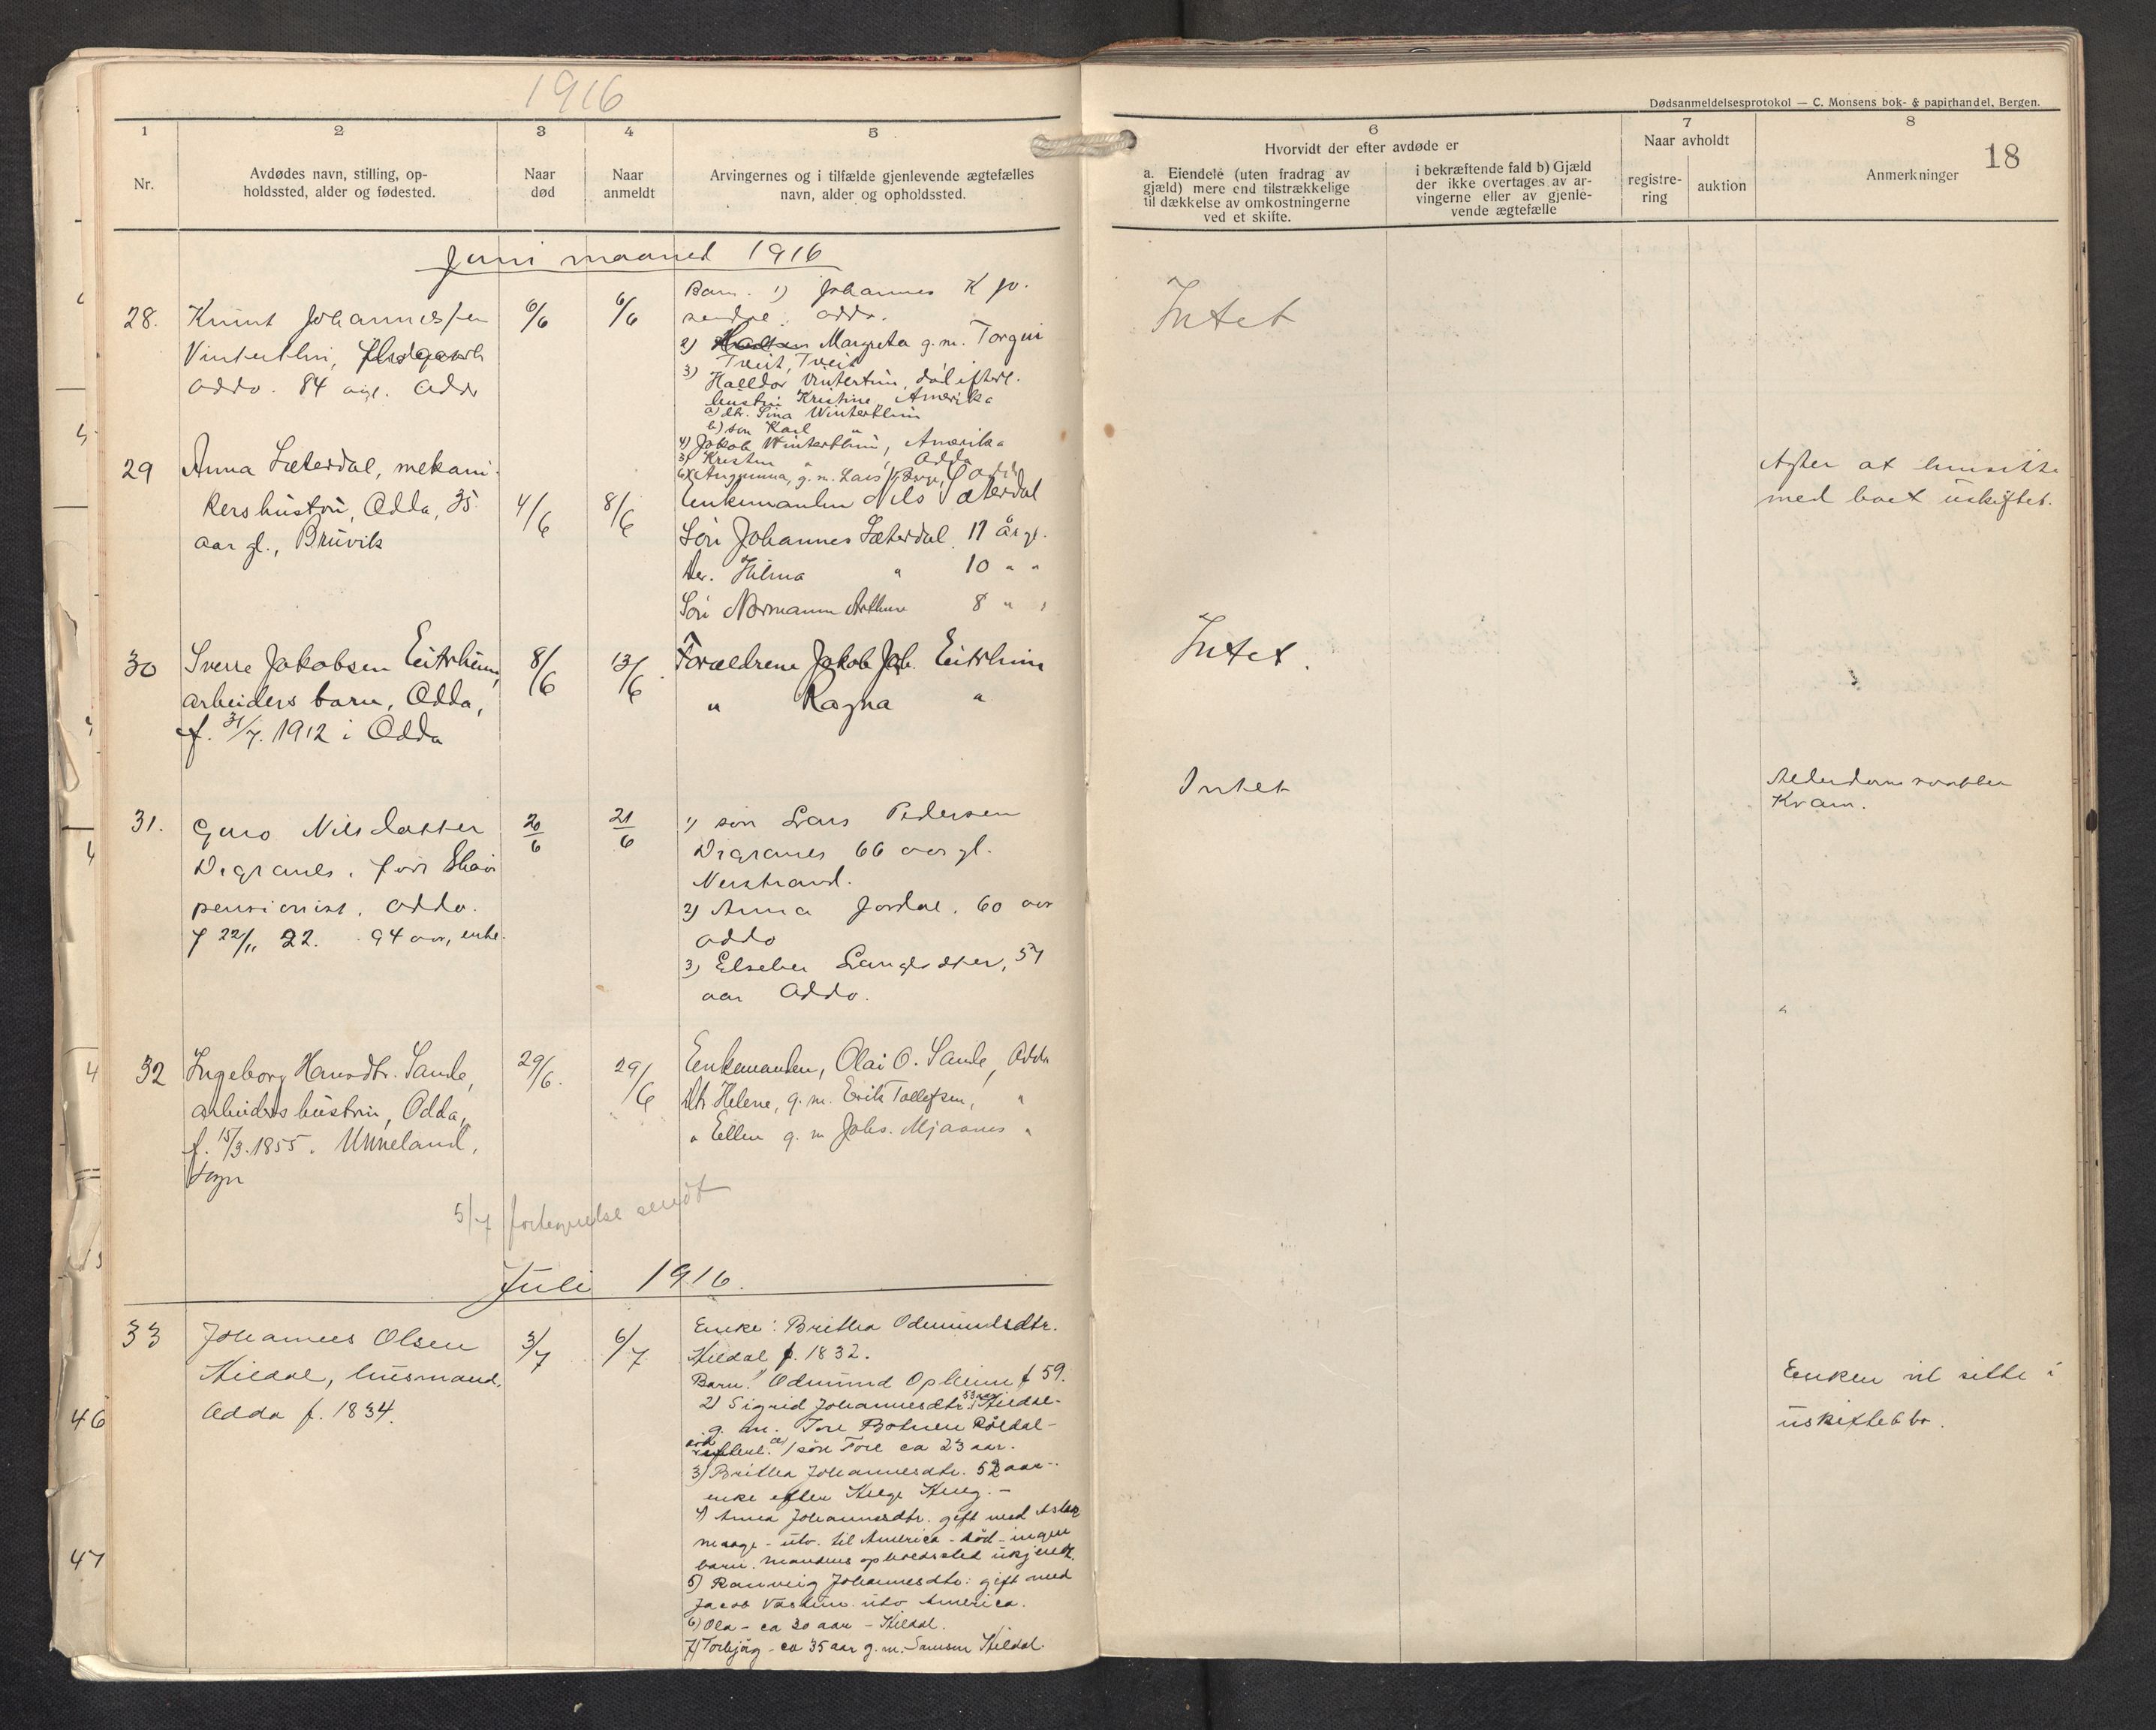 1916
Dødsanmeldelsesprotokol — C. Monsens bok- & papirhandel, Bergen.
18
1
2
3
4
5
6
7
8
Nr.
Avdødes navn, stilling, op-
holdssted, alder og fødested.
Naar
død
Naar
anmeldt
Arvingernes og i tilfælde gjenlevende ægtefælles
navn, alder og opholdssted.
Hvorvidt der efter avdøde er
a. Eiendele (uten fradrag av
gjæld) mere end tilstrækkelige
til dækkelse av omkostningerne
ved et skifte.
i bekræftende fald b) Gjæld
der ikke overtages av ar-
vingerne eller av gjenle-
vende ægtefælle
Naar avholdt
registre-
ring
auktion
Anmerkninger
Juni maaned 1916
28.
Knut Johannessen
Vinterthun,
Odda. 84 aar. Odda
6/6
6/6
Barn. 1) Johannes K
Odda.
2) Margreta g.m. Torgei
Tveit, Tveit
3) Halldor Vintertun, død efterl.
hustru Kristine, Amerika
a) dtr. Sina Winterthun
b) søn Karl "
4) Jakob Winterthun, Amerika
5) Kristen " Odda
g.m. Lars Odda
Intet
29
Anna Sæterdal, mekani-
kers hustru, Odda, 35
aar gl., Bruvik
4/6
8/6
Enkemanden Nils Sæterdal
Søn Johannes Sæterdal 11 år gl.
Dtr. Hilma " 10 " "
Søn Normann Arthur 8 " "
Agter at hensitte
med boet uskiftet.
30
Sverre Jakobsen Eitrheim,
arbeiders barn, Odda,
f. 31/7. 1912 i Odda
8/6
13/6
Forældrene Jakob Jak. Eitrheim
" Ragna "
Intet.
31.
Guro Nilsdatter
Digranes.
pensionist. Odda.
f 22/11 22. 94 aar, enke.
20/6
21/6
1) søn Lars Pedersen
Digranes 66 aar gl.
Nerstrand.
2) Anna Jordal. 60 aar
Odda
3) Elseber 57
aar Odda.
Intet
Kvam.
32
Ingeborg Hansdtr. Sande,
arbeiders hustru, Odda,
f. 15/3. 1855. Unneland,
Sogn
29/6.
29/6
Enkemanden, Olai O. Sande, Odda
Dtr. Helene, g.m. Erik Tollefsen, "
" Ellen g. m Johs. Mjaanes "
5/7 fortegnelse sendt
Juli 1916.
33
Johannes Olsen
Hildal, husmand,
Odda f. 1834.
3/7
6/7
Enke: Britha Odmundsdtr.
Hildal f. 1832.
Barn: 1) Odmund Opheim f 59.
2) Sigrid Johannesdtr. 53 aar Hildal-
g. m. Tore Botnen Røldal-
død efterl. a) søn Tore ca 23 aar.
3) Britha Johannesdtr. 52 aar-
enke efter Helge
4) Anna Johannesdtr. gift med
Maage - utv. til America - død - ingen
barn. Mandens opholdssted ukjendt.
5) Ranveig Johannesdtr: gift med
Jacob utv America.
6) Ola - ca 30 aar - Hildal.
7) Torbjøg - ca 35 aar g.m. Samson Hildal.
Enken vil sitte i
uskiftet bo.
46
47